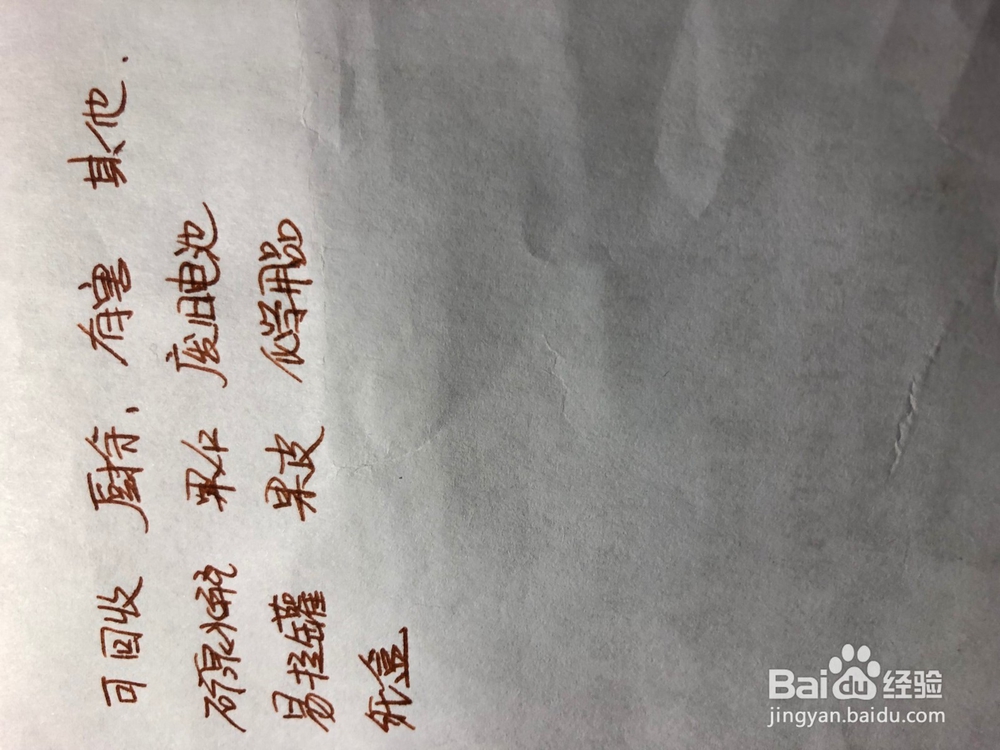 可回收 厨余、有害 其他.
矿泉水瓶 果仁 废旧电池
易拉罐 果皮 化学用品
纸盒
Baidu经验
jingyan.baidu.com